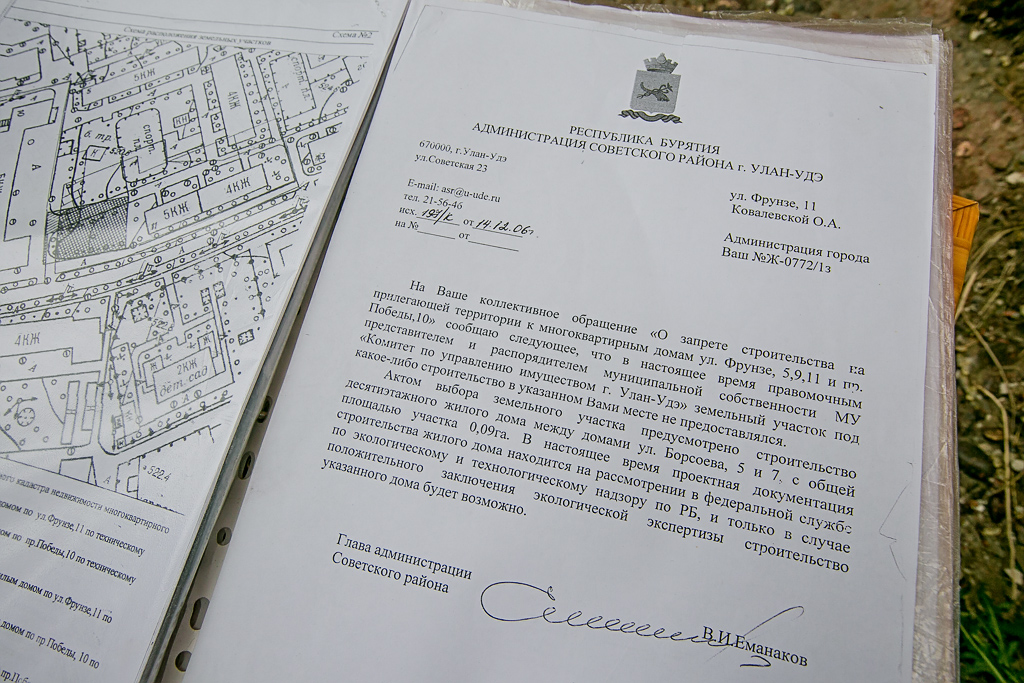 Схема расположения земельных участков
Схема №2
5КЖ
4КЖ
КН
б. тр.
К
спорт.
пл.
4КЖ
5КЖ
А
4КЖ
2КЖ
дет. сад
522.4
кадастра недвижимости многоквартирного
домом по ул.Фрунзе,11 по техническому
домом по пр.Победы,10 по техническому
илым домом по ул.Фрунзе,11 по
домом по пр Победы, 10 по
РЕСПУБЛИКА БУРЯТИЯ
АДМИНИСТРАЦИЯ СОВЕТСКОГО РАЙОНА г. УЛАН-УДЭ
670000, г.Улан-Удэ
ул.Советская 23
E-mail: asr@u-ude.ru
тел. 21-56-46
исх. 197/к от 14.12.06г.
на №______ от________
ул. Фрунзе, 11
Ковалевской О.А.
Администрация города
Ваш №Ж-0772/1з
На Ваше коллективное обращение «О запрете строительства на
прилегающей территории к многоквартирным домам ул. Фрунзе, 5,9,11 и пр.
Победы,10» сообщаю следующее, что в настоящее время правомочным
представителем и распорядителем муниципальной собственности МУ
«Комитет по управлению имуществом г. Улан-Удэ» земельный участок под
какое-либо строительство в указанном Вами месте не предоставлялся.
Актом выбора земельного участка предусмотрено строительство
десятиэтажного жилого дома между домами ул. Борсоева, 5 и 7, с общей
площадью участка 0,09га. В настоящее время проектная документация
строительства жилого дома находится на рассмотрении в федеральной службе
по экологическому и технологическому надзору по РБ, и только в случае
положительного заключения экологической экспертизы строительство
указанного дома будет возможно.
Глава администрации
Советского района
В.И.Еманаков